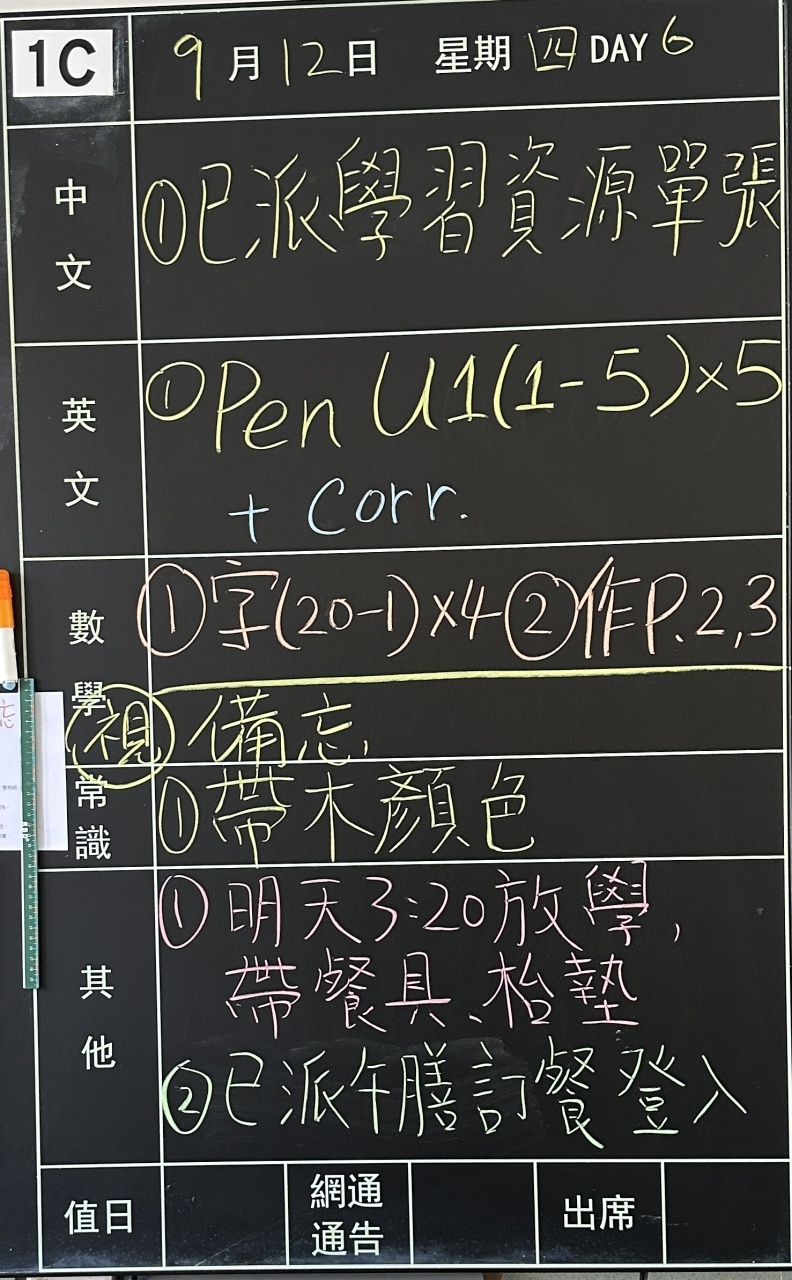 1C
9月12日 星期四 DAY 6
中文
①已派學習資源單張
英文
①Pen U1(1-5)×5
+ Corr.
數學
①字(20-1)×4 ②作P.2,3
視 備忘
常識
①帶木顏色
其他
①明天3:20放學,
帶餐具、枱墊
②已派午膳訂餐登入
值日 網通通告 出席
忘